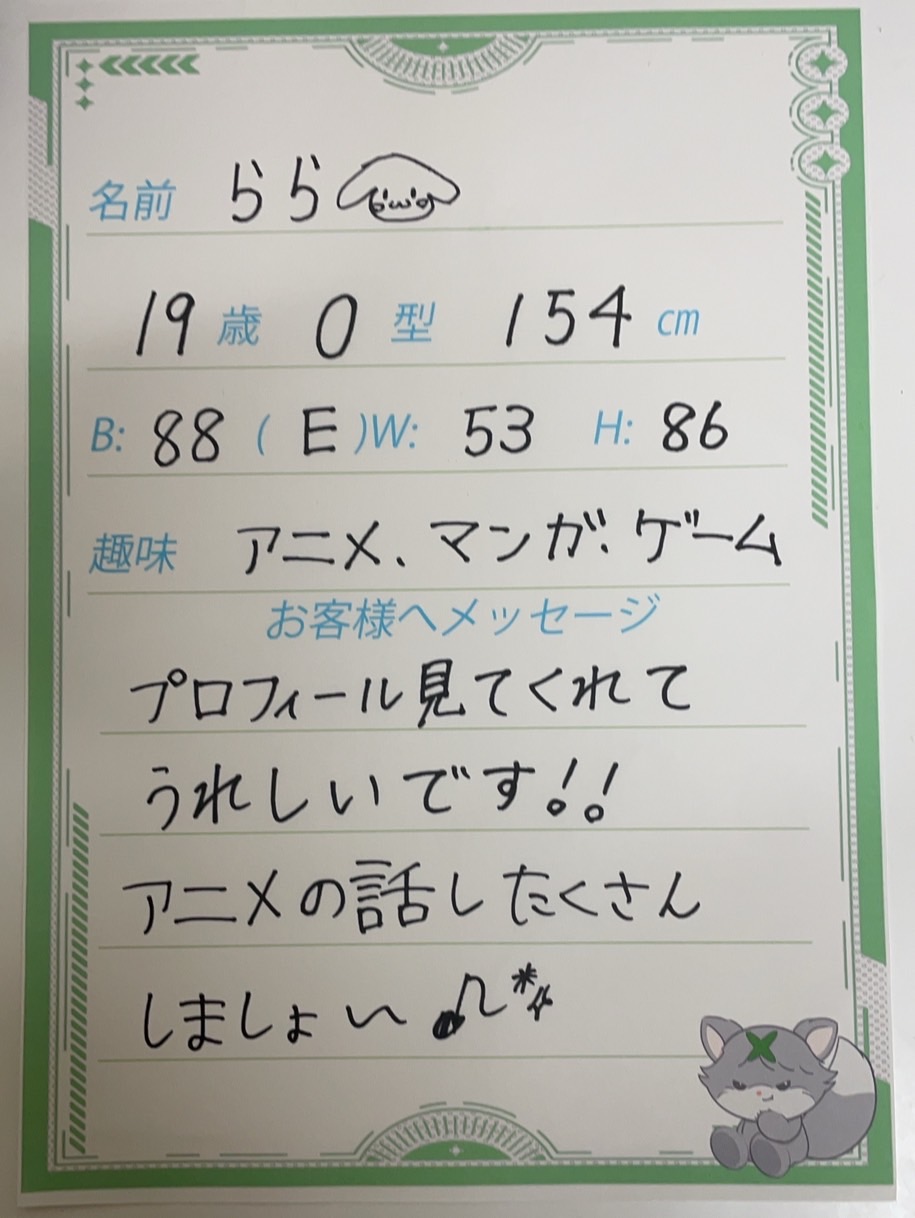 名前 らら
19歳 O型 154cm
B: 88 (E)W: 53 H: 86
趣味 アニメ、マンガ、ゲーム
お客様へメッセージ
プロフィール見てくれて
うれしいです!!
アニメの話したくさん
しましょい♫*